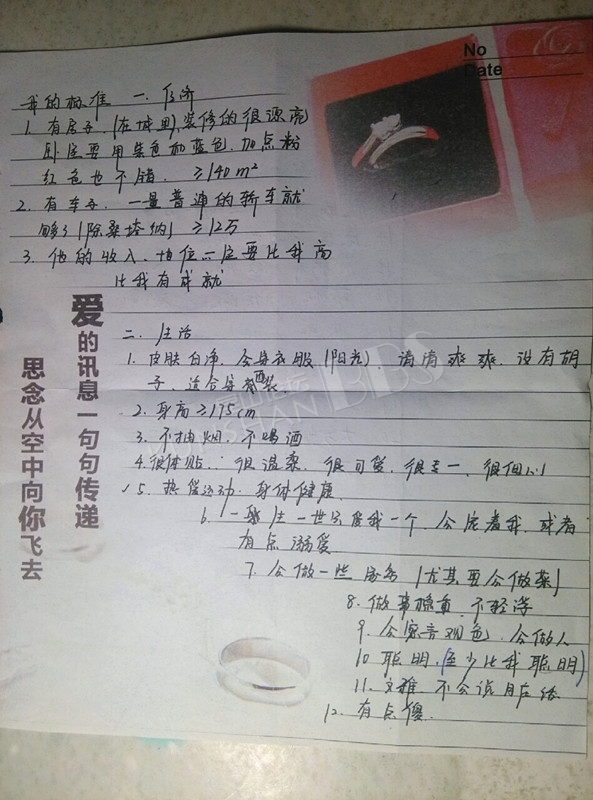 No
Date
我的标准 一、经济
1. 有房子，(在城里)，装修的很漂亮
卧室要用紫色和蓝色，加点粉
红色也不错。≥140m²
2. 有车子，一量普通的轿车就
够了(除桑塔纳) ≥12万
3. 他的收入、地位一定要比我高
比我有成就
二、生活
1. 皮肤白净，会穿衣服(阳光)，清清爽爽，没有胡
子，适合穿西装
2. 身高≥175cm
3. 不抽烟，不喝酒
4. 很体贴，很温柔，很可爱，很专一，很细心
5. 热爱运动，身体健康
6. 一生一世只爱我一个，会宠着我，或者
有点溺爱
7. 会做一些家务(尤其要会做菜)
8. 做事稳重，不轻浮
9. 会察言观色，会做人
10 聪明，(至少比我聪明)
11、文雅 不会说脏话
12. 有点傻。
爱的讯息一句句传递
思念从空中向你飞去
BBS